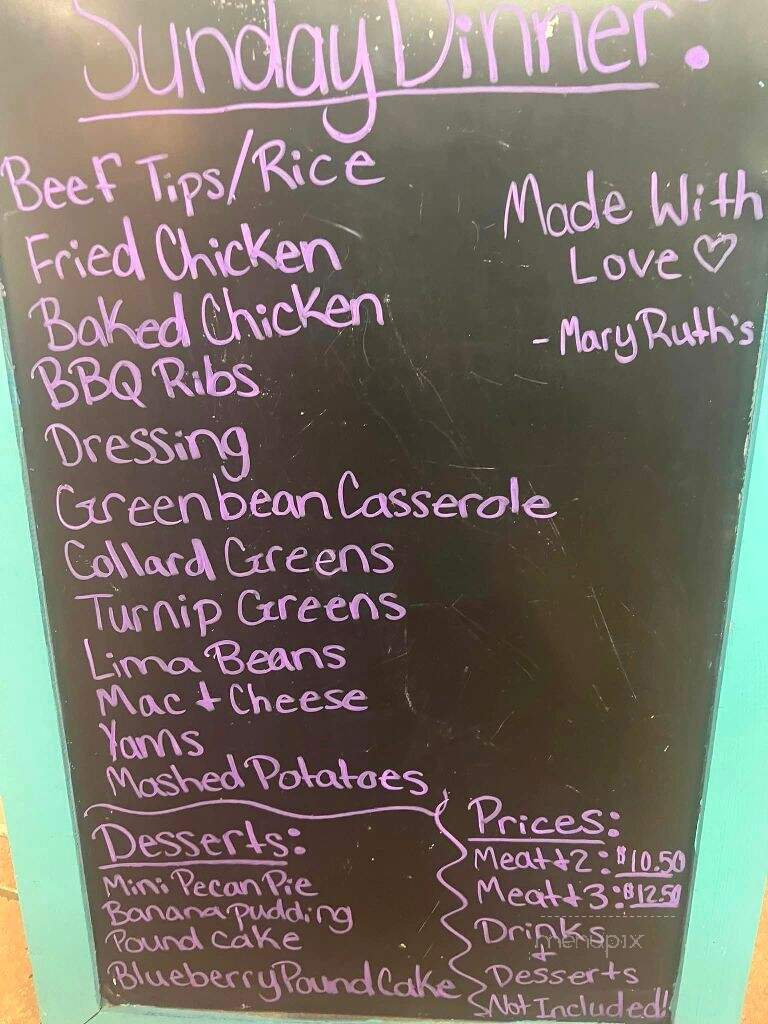 Sunday Dinner:
Beef Tips/Rice
Fried Chicken
Baked Chicken
BBQ Ribs
Dressing
Greenbean Casserole
Collard Greens
Turnip Greens
Lima Beans
Mac + Cheese
Yams
Mashed Potatoes
Made With
Love ♡
- Mary Ruth's
Desserts:
Mini Pecan Pie
Banana pudding
Pound cake
Blueberry Pound Cake
Prices:
Meat + 2: $10.50
Meat + 3: $12.50
Drinks
+
Desserts
Not Included!
menupix